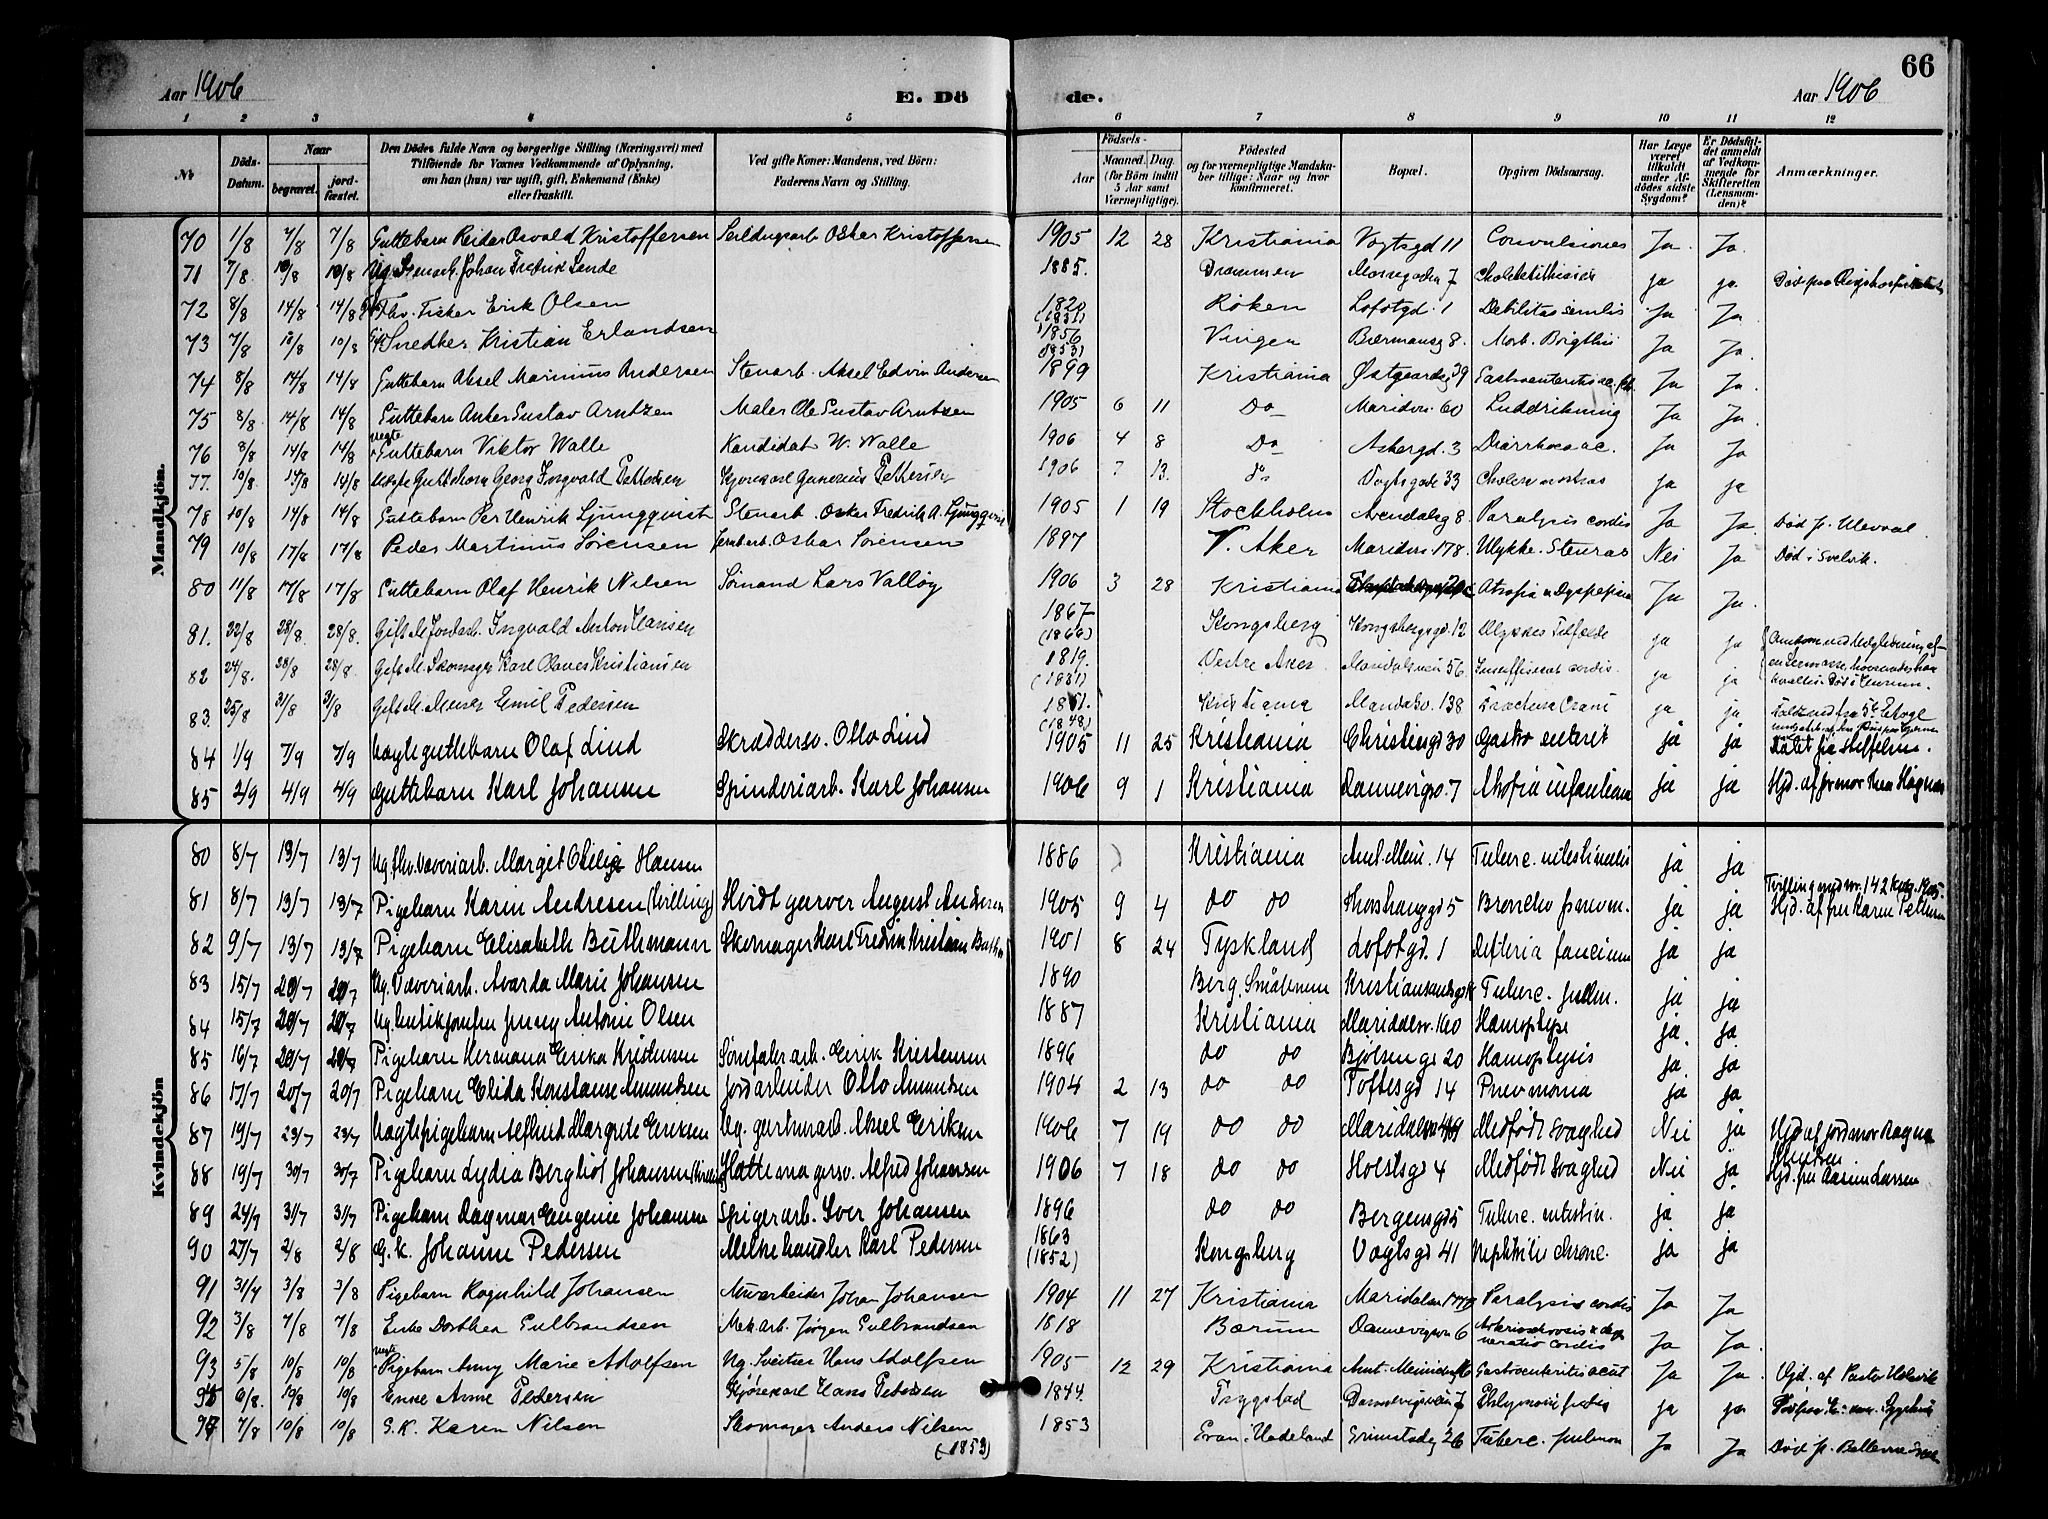 66
Aar 1906
E. Dö de.
Aar 1906
1 2 3 4 5 6 7 8 9 10 11 12
№
Döds-Datum.
Naar
begravet.
jord-fæstet.
Den Dödes fulde Navn og borgerlige Stilling (Næringsvei) med Tilföiende for Voxnes Vedkommende af Oplysning, om han (hun) var ugift, gift, Enkemand (Enke) eller fraskilt.
Ved gifte Koner: Mandens, ved Börn: Faderens Navn og Stilling.
Födsels-
Aar
Maaned. Dag.
(for Börn indtil 5 Aar samt Værnepligtige).
Födested og for værnepligtige Mandskaber tillige: Naar og hvor konfirmeret.
Bopæl.
Opgiven Dödsaarsag.
Har Læge været tilkaldt under Afdödes sidste Sygdom?
Er Dödsfaldet anmeldt af Vedkommende for Skifteretten (Lensmanden)?
Anmærkninger.
Mandkjön.
70 1/8 7/8 7/8 Guttebarn Reidar Osvald Kristoffersen Seildugsarb. Osker Kristoffersen 1905 12 28 Kristiania Vogtsgd 11 Convulsiones Ja. Ja.
71 7/8 10/8 10/8 Ug. Stenarb. Johan Fredrik Sende 1885. Drammen Mossegaden 7 ja ja. Död paa Rigshospitalet
72 8/8 14/8 14/8 Fhv. Fisker Erik Olsen 1820 (1831) Røken Lofotgd. 1 Debilitas senilis Ja Ja.
73 7/8 10/8 10/8 Snedker Kristian Erlandsen 1856 (1853) Vinger Bærmansg 8. Morb. Brigthii Ja Ja.
74 8/8 14/8 14/8 Guttebarn Aksel Marinius Andersen Stenarb. Aksel Edvin Andersen 1899 Kristiania Østgaardsg 39 Gastroenteritis ac. Ja Ja.
75 8/8 14/8 14/8 Guttebarn Anker Gustav Arntzen Maler Ole Gustav Arntzen 1905 6 11 Do Maridsv. 60 Luddrikning Ja Ja.
76 8/8 14/8 14/8 uegte Guttebarn Viktor Walle Kandidat W. Walle 1906 4 8 Do Askergd. 3 Diarrhoea ac. Ja Ja
77. 10/8 14/8 14/8 uægte Guttebarn Georg Ingvald Pettersen Kjørekarl Gunerius Pettersen 1906 7 13. Do Vogtsgade 33 Cholera nostras ja ja
78 10/8 14/8 14/8 Guttebarn Per Henrik Ljungqvist Stenarb. Oskar Fredrik A. Ljungqvist 1905 1 19 Stockholm Arendalsg 8. Paralysis cordis Ja Ja. Död p. Ulevaal.
79 10/8 17/8 17/8 Peder Martinus Sørensen Jernarb. Oskar Sørensen 1897 V. Aker Maridsv. 178. Ulykke. Stenras Nei Ja Död i Svelvik.
80 11/8 17/8 17/8 Guttebarn Olaf Henrik Nilsen Sømand Lars Valløy 1906 3 28 Kristiania Atrofia & Dyspepsia Ja Ja.
81. 22/8 28/8. 28/8. Gift M. Jordarb. Ingvald Anton Hansen 1867 (1866) Kongsberg Kongsbergsgd. 12 Ulykkes Tilfælde ja ja
82 24/8. 28/8 28/8. Gift M. Skomager Karl Olaves Kristiansen 1819. (1831) Vestre Aker Maridalsveien 56 Insufficient cordis. ja ja
83. 25/8 31/8 31/8 Gift M. Murer Emil Pedersen 1861. (1848) Kristiania Maridalsv. 138 Fractura Crani ja ja
84 1/9 7/9 7/9 Uægte guttebarn Olaf Lind Skræddersv. Otto Lind 1905 11 25 Kristiania Christiesgd 30 Gastro enterit ja ja
85 2/9 4/9 4/9 Guttebarn Karl Johansen Spinderiarb. Karl Johansen 1906 9 1 Kristiania Dannevigsv. 7 Atrofia infantiana ja ja Hjd. af jormor
Kvindekjön
80 8/7 13/7 13/7 Ug. fhv. Væveriarb. Margit Otilie Hansen 1886 Kristiania Amt. Mein. 14 Tuberc. intestinalis ja ja
81 8/7 13/7 13/7 Pigebarn Karin Andresen (tvilling) Hvidt garver August Andresen 1905 9 4 do do Thorshaugsgd 5 Broncho pnevm. ja ja Tvilling med nr. 142 Hjd. af fru Karen Pettersen
82 9/7 13/7 13/7 Pigebarn Elisabeth Buthmann Skomager Karl Fredrik Kristian 1901 8 24 Tyskland Lofotgd. 1 Difteria faucium ja ja
83 15/7 20/7 20/7 Ug. Væveriarb. Avarda Marie Johansen 1890 Berg. Smålenene Tuberc. pulm. ja ja
84 15/7 20/7 20/7 Ug. butikjomfru Jenny Antonie Olsen 1887 Kristiania Maridalsv. 160 Hæmoptyse ja. ja
85 16/7 20/7 20/7 Pigebarn Hermana Erika Kristensen Erik Kristensen 1896 do do Bjølsen gd 20 Hæmoptysis ja ja
86 17/7 20/7 20/7 Pigebarn Elida Konstanse Amundsen Jordarbeider Otto Amundsen 1904 2 13 do do Toftesgd 14 Pnevmonia ja ja
87 19/7 23/7 23/7 Uægte pigebarn Alfhild Margrete Eriksen Ug. gartnerarb. Aksel Eriksen 1906 7 19 do do Medfødt svaghed Nei ja Hjd af jordmor Ragna
88 19/7 30/7 30/7 Pigebarn Lydia Bergliot Johansen Hattemagersv. Alfred Johansen 1906 7 18 do do Holstsgd 4 Medfødt svaghed Nei ja Hjd. fru Larsen
89 24/7 31/7 31/7 Pigebarn Dagmar Eugenie Johansen Spigerarb. Iver Johansen 1896 do do Bergensgd 5 Tuberc. intestin. ja ja
90 27/7 2/8 2/8 G. k. Johanne Pedersen Melkehandler Karl Pedersen 1863 (1852) Kongsberg Vogtsgd 41 Nephtritis chronc. ja ja
91 31/7 3/8 3/8 Pigebarn Ragnhild Johansen Murarbeider Johan Johansen 1904 11 27 Kristiania Paralysis cordis Ja Ja
92 3/8 7/8 7/8 Enke Dorthea Gulbrandsen Mek arb. Jørgen Gulbrandsen 1818 Bærum Dannevigsv. 6 Arteriosclerosis & degeneratio cordis Ja Ja.
93 5/8 10/8 10/8 uegte Pigebarn Anny Marie Adolfsen Ug. Sveitser Hans Adolfsen 1905 12 29 Kristiania Gastroenteritis acut Ja Ja. Gjd. af Pastor
6/8. 10/8 10/8 Enke Anne Pedersen Kjørekarl Hans Pedersen 1844. Trygstad Dannevigsveien 7 ja ja
7/8 10/8 10/8 G. K. Karen Nilsen Skomager Anders Nilsen (1853) 1853 Gran. Hadeland Grimstadg 26 Tuberc. pulmon Ja Ja Død p.